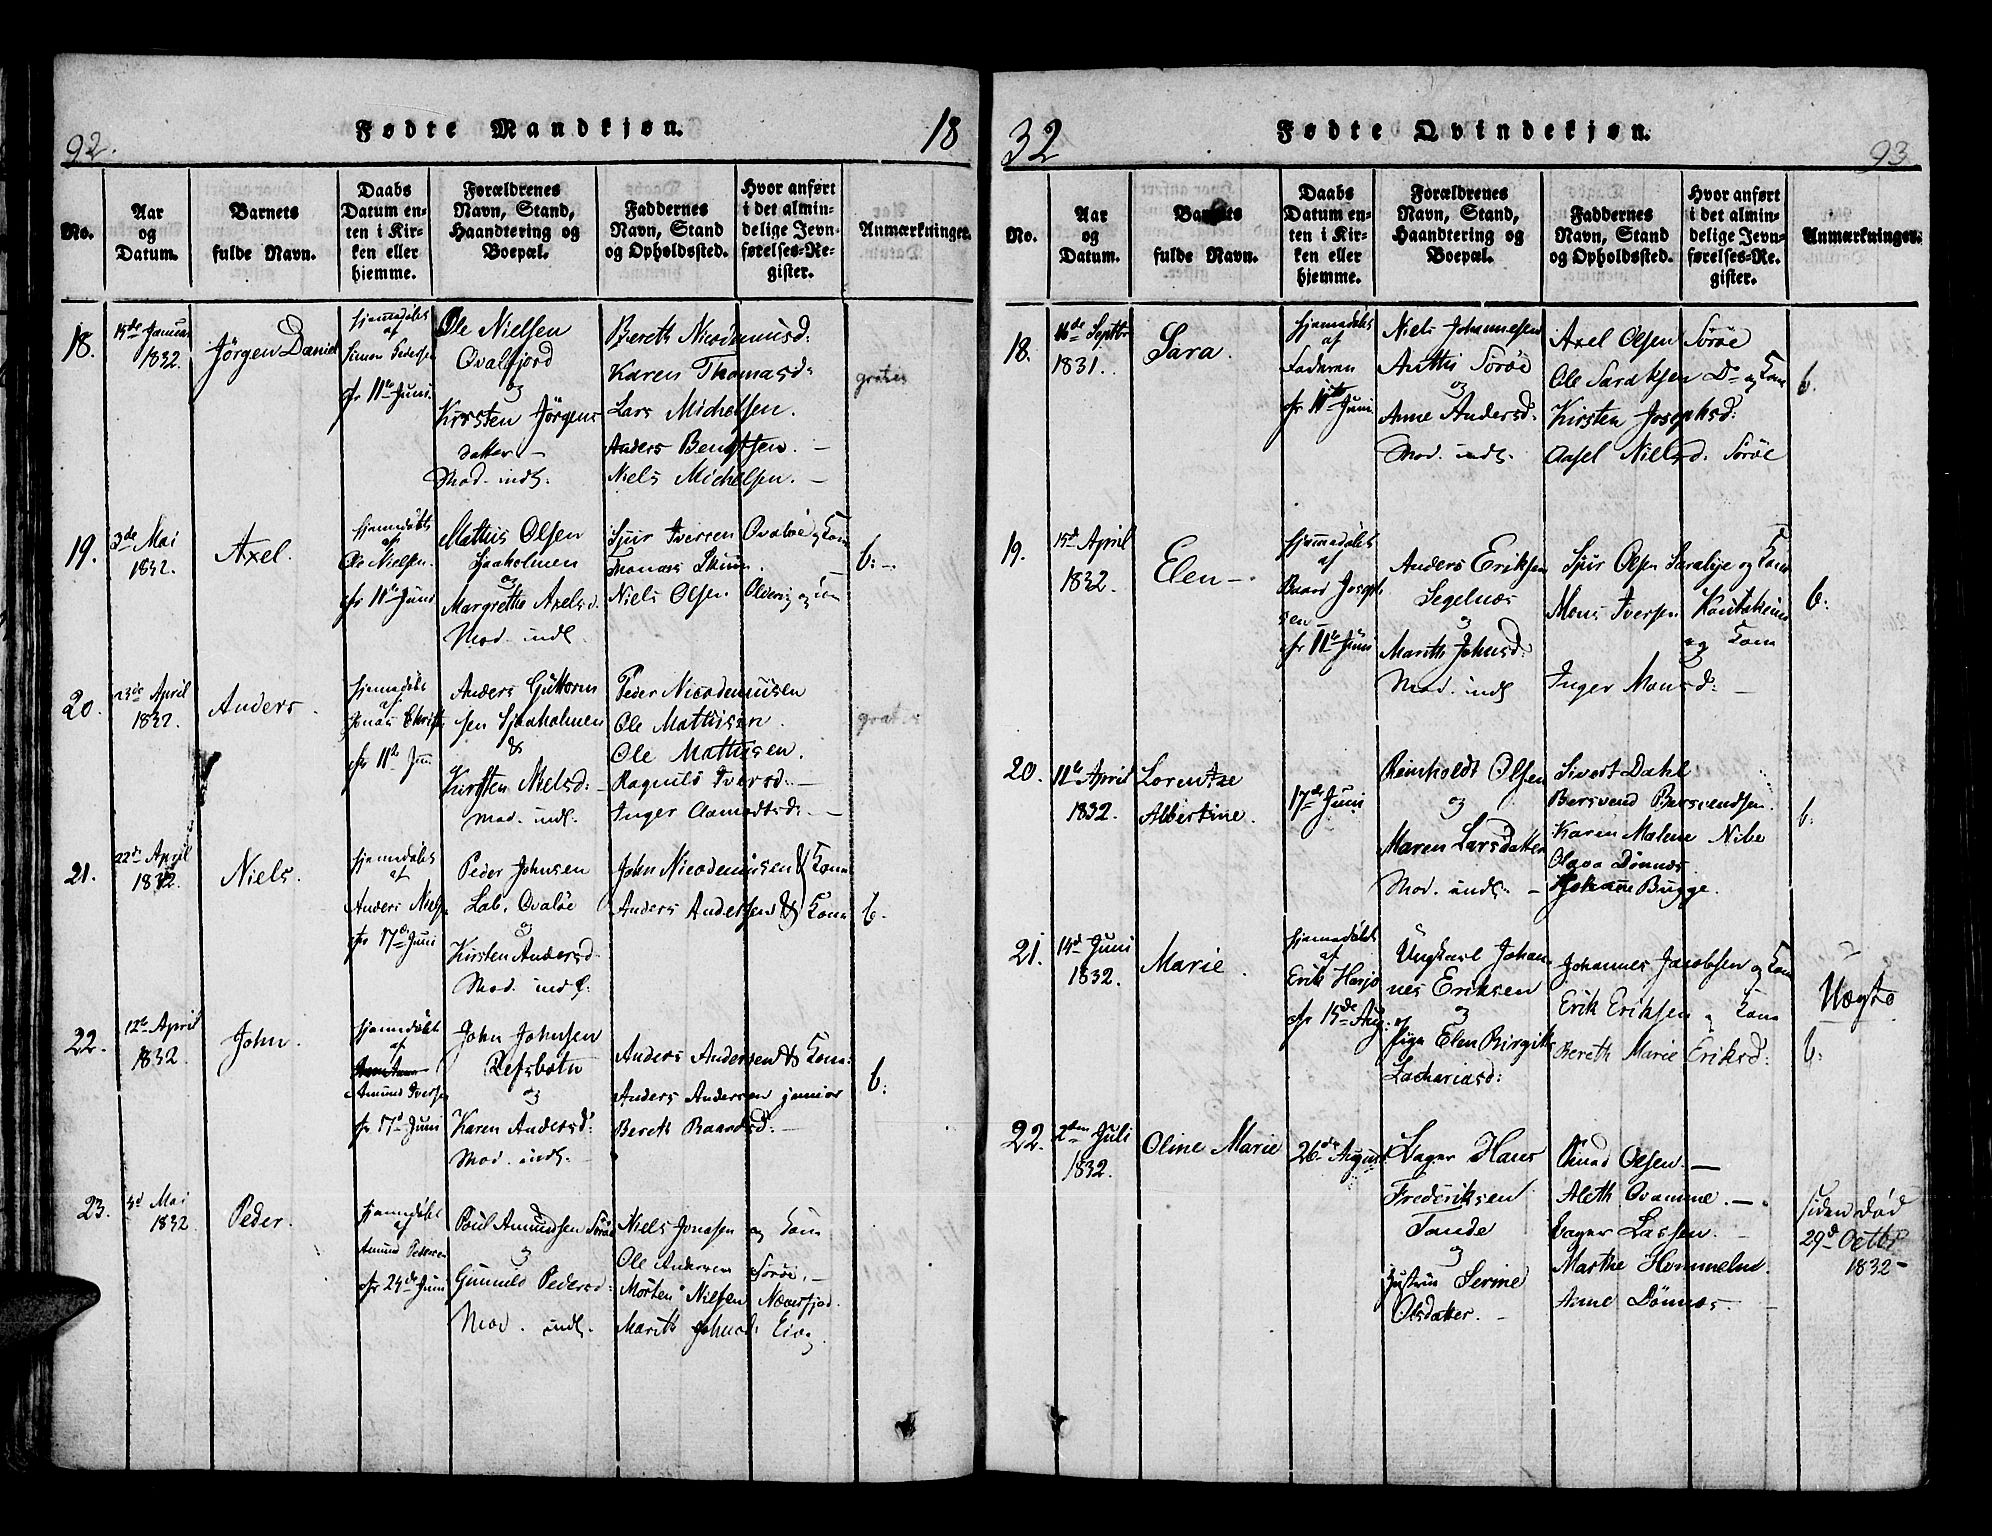 92.
Fødte Mandkjøn.
18
No.
Aar
og
Datum.
Barnets
fulde Navn.
Daabs
Datum en-
ten i Kir-
ken eller
hjemme.
Forældrenes
Navn, Stand,
Haandtering og
Boepæl.
Faddernes
Navn, Stand
og Opholdssted.
Hvor anført
i det almin-
delige Jevn-
førelses-Re-
gister.
Anmærkninger.
18.
15de Januar
1832.
Jörgen Daniel
hjemmedöbt
af
Simon Pedersen
cfr 11te Juni.
Ole Nielsen
Qvalfjord
og
Kirsten Jörgens
datter –
Mod. indl:
Bereth Nicodemusd:
Karen Thomasd:
Lars Michelsen.
Anders Bengtsen. –
Niels Michelsen. –
gratis
19.
3de Mai
1832.
Axel.
hjemmdöbt
af
Ole Nielsen.
cfr 11te Juni
Mathis Olsen
Sjaaholmen
og
Margrethe Axelsd.
Mod. indl.
Sjur Iversen Qvaløe og Kone
Thomas
Niels Olsen
b: –
20.
23de April
1832.
Anders.
hjemmedöbt
af
Jonas Christ
cfr 11te Juni
Anders Guttorm
sen Sjaaholmen
&
Kirsten Nielsd: –
Mod. indl.
Peder Nicodemusen
Ole Mathisen.
Ole Mathisen.
Ragnild Iversd: –
Inger Aamodtsd: –
grat:
21.
22de April
1832.
Niels.
hjemmdöbt
af
Anders Niels
cfr 17de Juni
Peder Johnsen
Lab. Qvaløe
og
Kirsten Andersd.
Mod. indl:
John Nicodemusen & Kone
Anders Andersen & Kone
b.
22.
12te April
1832.
John.
hjemmdöbt
af
Amund Iversen
cfr 17d Juni
John Johnsen
Refsbotn
og
Karen Andersd:
Mod. indl.
Anders Andersen & Kone
Anders Andersen junior
Bereth Baardsd: –
b:
23.
3d Mai
1832.
Peder.
hjemmdöbt
af
Amund Pedersen
cfr 24de Juni
Poul Amundsen Sørøe
og
Gunnild Pedersd:
Mod. indl.
Niels Jonasen og Kone
Ole Andersen Sørøe. –
Morten Nielsen Næverfjord.
Marith Johnsd:
32
Fødte Qvindekjøn.
93
No.
Aar
og
Datum.
Barnets
fulde Navn.
Daabs
Datum en-
ten i Kir-
ken eller
hjemme.
Forældrenes
Navn, Stand,
Haandtering og
Boepæl.
Faddernes
Navn, Stand
og Opholdssted.
Hvor anført
i det almin-
delige Jevn-
førelses-Re-
gister.
Anmærkninger.
18.
16de Septbr
1831.
Sara.
hjemmedöbt
af
Faderen
cfr 11te Juni
Niels Johannesen
Anthi Sørøe
og
Anne Andersd.
Mod. indl.
Axel Olsen Sørøe
Ole Saraksen Do og Kone
Kirsten Josephsd:
Aasel Nielsd. Sørøe
b.
19.
15d April
1832.
Elen –.
hjemmedöbt
af
Baard Joseph
sen –
cfr 11te Juni
Anders Eriksen
Segelnæs
og
Marith Johnsd:
Mod. indl
Sjur Olsen Saraby og Kone
Mons Iversen Kautokeino
og Kone
Inger Monsd: –
b:
20.
11te April
1832.
Lorentze
Albertine.
17de Juni
Reinholdt Olsen
og
Maren Larsdatter
Mod. indl: –
Sivert Dahl
Bersvend Bersvendsen.
Karen Malene Nibe
Olava Dönnæs.
Johanne Bugge.
b.
21.
14d Juni
1832.
Marie.
hjemmedöbt
af
Erik Harjo
cfr 15de Aug:
Ungkarl Johan
nes Eriksen
og
Pige Elen Birgith
Zachariasd:
Johannes Jacobsen og Kone
Erik Eriksen og Kone
Bereth Marie Eriksd:
Uægte
b:
22.
2den Juli
1832.
Oline Marie
26de August.
Vager Hans
Frederiksen
Tande
og
Hustrue Serine
Olsdatter. –
Knud Olsen. –
Aleth Qvamme. –
Vager Lassen. –
Marthe Hommelno.
Anne Dönnæs. –
siden död
29d Octbr
1832 –